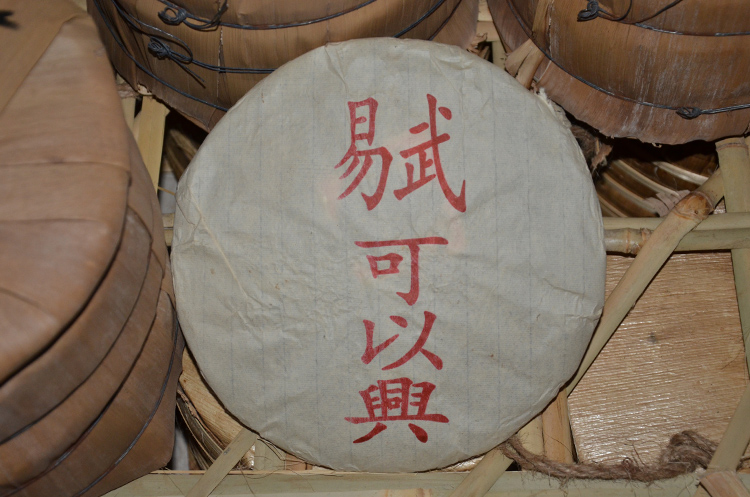 易武
可以興